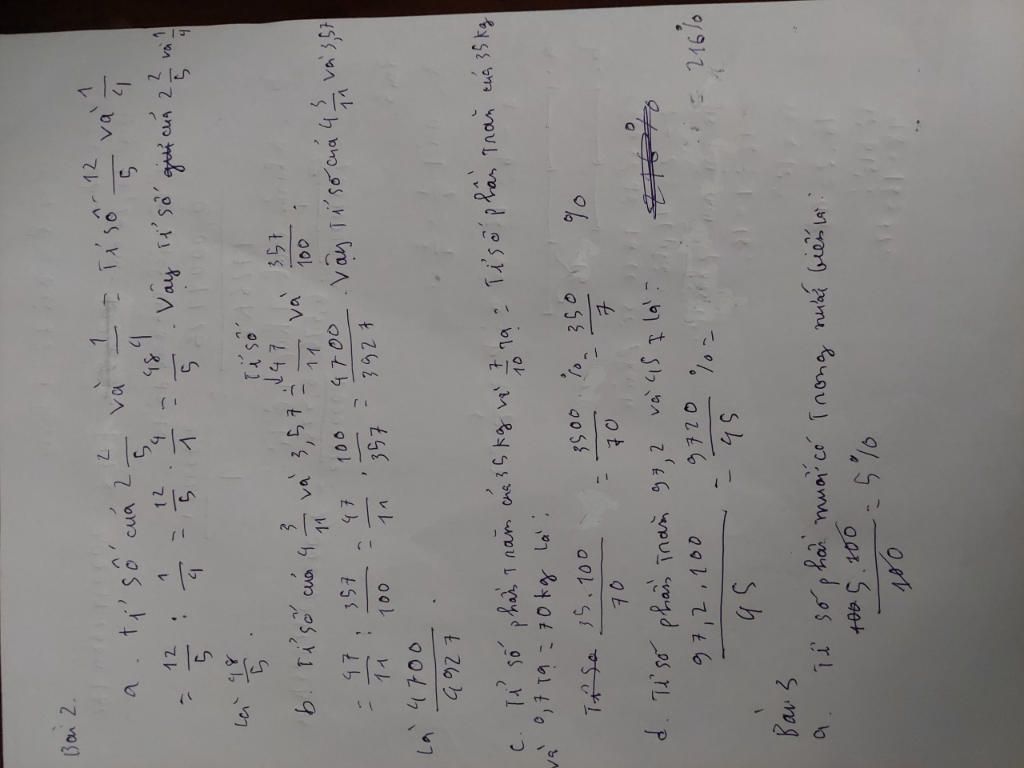 Bài 2.
a. tỉ số của 2 2/5 và 1/4 = Tỉ số 12/5 và 1/4
= 12/5 : 1/4 = 12/5 . 4/1 = 48/5 . Vậy Tỉ số của 2 2/5 và 1/4
Là 48/5 .
b. Tỉ số của 4 3/11 và 3,57 = Tỉ số 47/11 và 357/100 .
= 47/11 : 357/100 = 47/11 . 100/357 = 4700/3927 . Vậy Tỉ số của 4 3/11 và 3,57
Là 4700/4927 .
c. Tỉ số phần Trăm của 35 kg và 7/10 Tạ = Tỉ số phần Trăm của 35 kg
và 0,7 Tạ = 70 kg Là:
Tỉ số 35.100/70 = 3500/70 % = 350/7 %
d. Tỉ số phần Trăm 97,2 và 45 7 là:
97,2.100/45 = 9720/45 % = = 216%
Bài 3
a. Tỉ số phần muối có Trong nước biển là:
5.100/100 = 5%